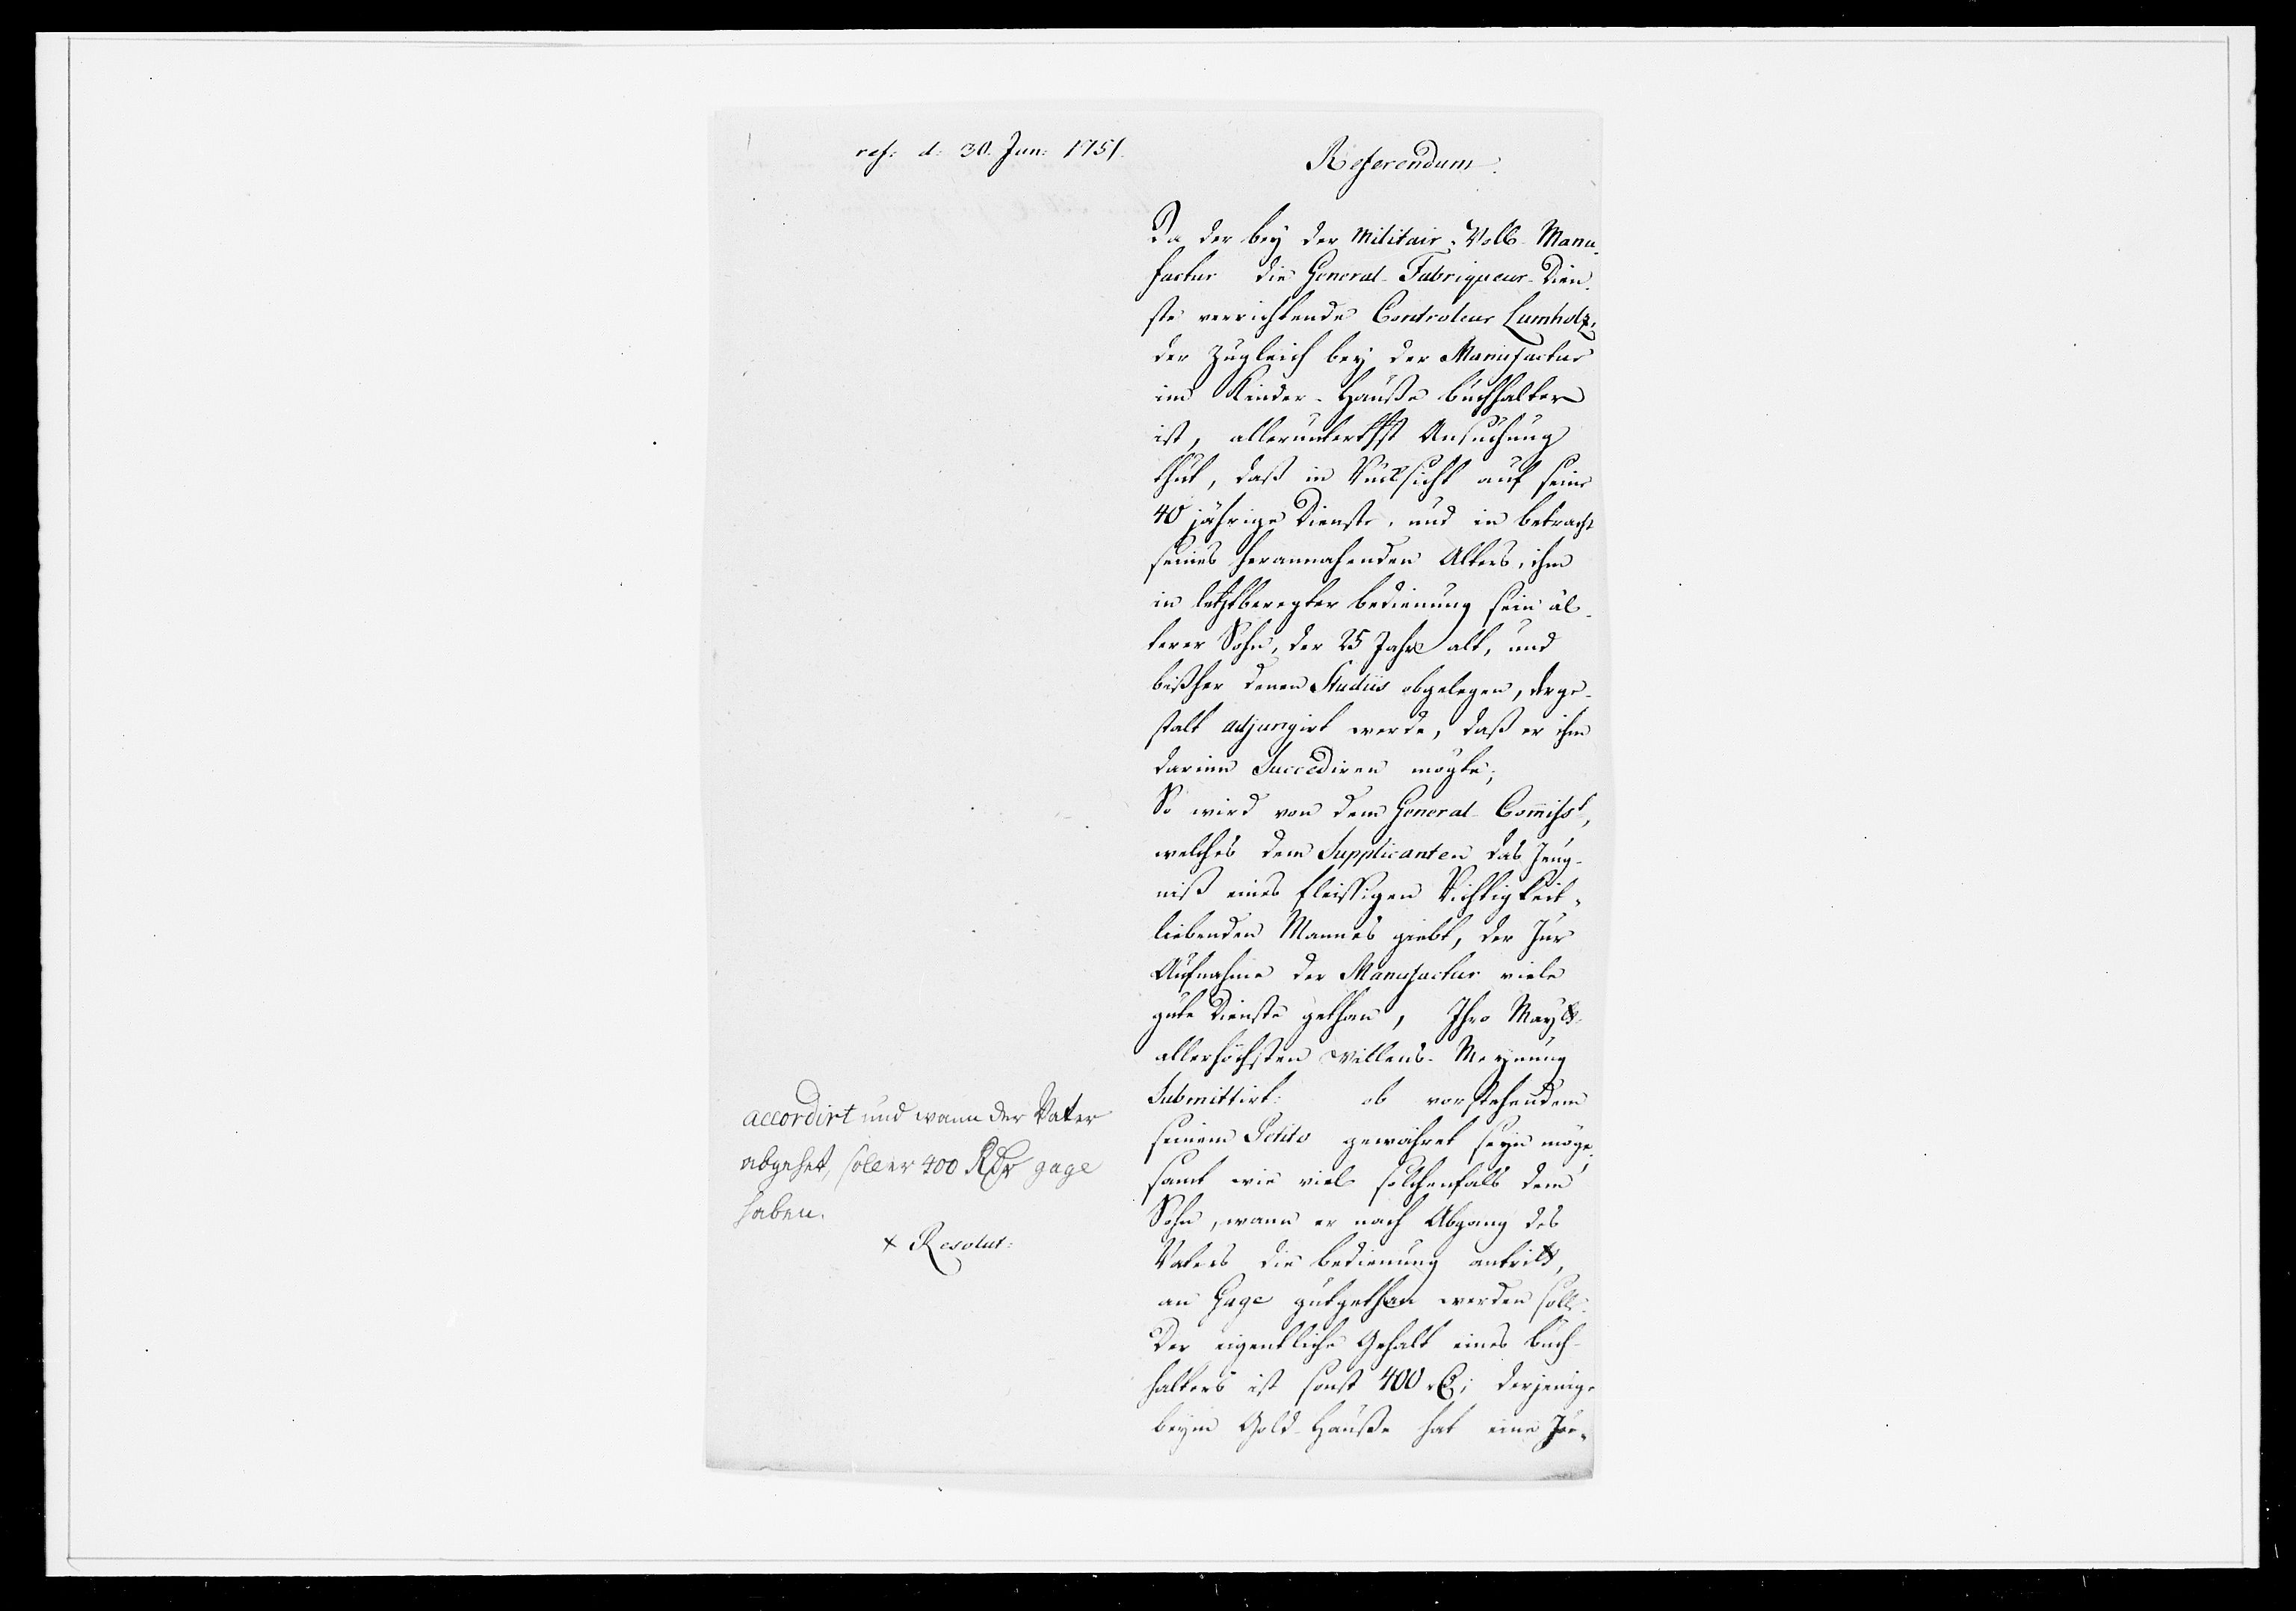 ref: d: 30. Jun: 1751.
Referendum.
Da der bey der Militair-Woll-Manu-
factur die General-Fabriqueur-Dien-
ste verrichtende Controleur Lumholz,
der zugleich bey der Manufactur
im Kinder-Hauße buchhalter
ist, allerunterthst Ansuchung
thut, daß in Rücksicht auf seine
40 jährige Dienste, und in betracht
seines herannahenden Alters, ihm
in letztberegter bedienung sein äl-
terer Sohn, der 25 Jahr alt, und
bißher denen Studiis obgelegen, derge-
stalt adjungirt werde, daß er ihm
darinn Succediren mögte;
So wird von dem General-Commisst,
welches dem Supplicanten das Zeug-
niß eines fleissigen Richtigkeit-
liebenden Mannes giebt, der zur
Aufnahme der Manufactur viele
gute Dienste gethan, Ihro Maytt
allerhöchsten Willens-Meynung
Submittirt: ob vorstehendem
seinem Petito gewähret seyn möge,
samt wie viel solchenfals dem
Sohn, wann er nach Abgang des
Vaters die bedienung antritt,
an Gage gutgethan werden soll.
Der eigentliche Gehalt eines buch-
halters ist sonst 400 Rt; derjenige
beym Gold-Hauße hat eine Zu-
accordirt und wann der Vater
abgehet, soll er 400 Rdr gage
haben.
x Resolut: